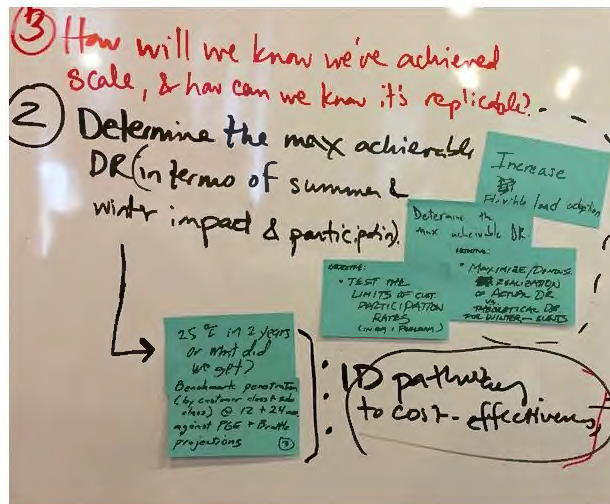 ③ How will we know we've achieved
scale, & how can we know it's replicable?
② Determine the max achievable
DR (in terms of summer &
winter impact & participation).
Increase
Flexible load adoption
Determine the
max acheivable DR
OBJECTIVE:
• TEST THE
LIMITS OF CUST.
PARTICIPATION
RATES
(IN
• MAXIMIZE/
REALIZATION
OF ACTUAL DR
VS.
THEORETICAL DR
FOR WINTER EVENTS
25% in 2 years
or what did
we get?
Benchmark penetration
(by customer class + sub
class) @ 12 + 24 mo.
against PGE + Brattle
projections
ID pathway
to cost-effectiveness